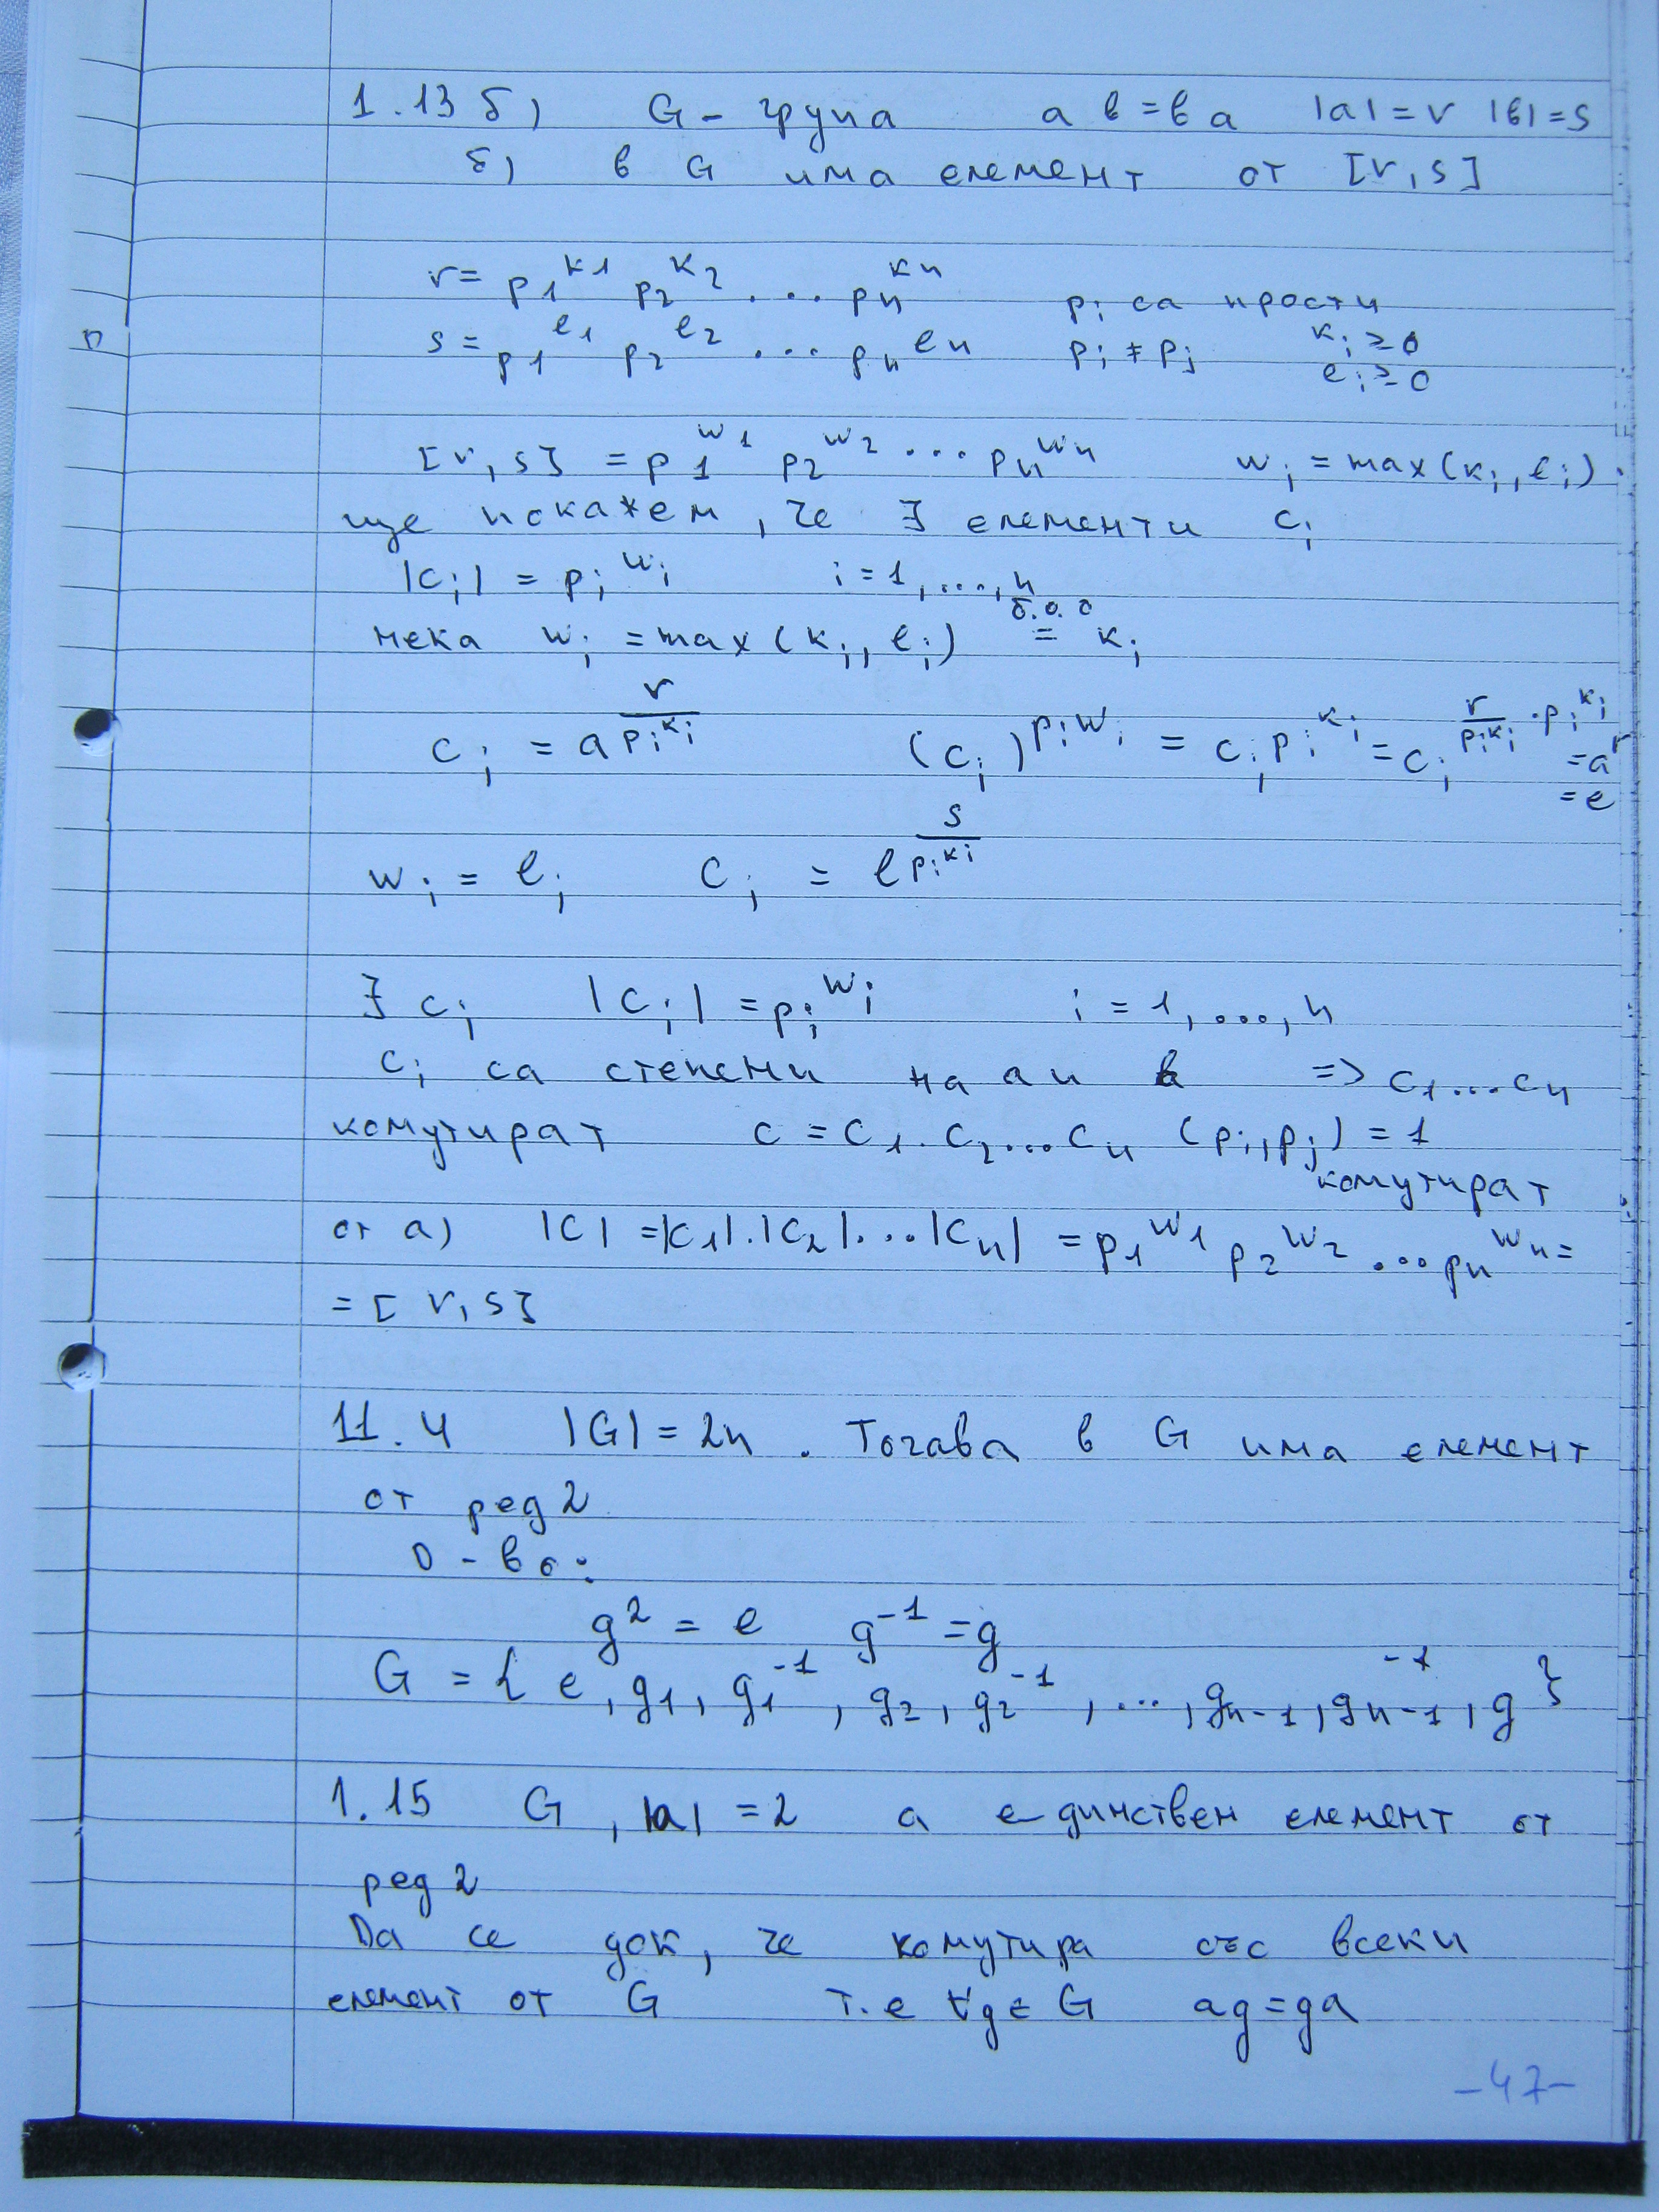 1.13 б) G - група a b = b a |a| = r |b| = s
б) в G има елемент от [r, s]
r = p1^k1 p2^k2 ... pn^kn pi са прости
s = p1^l1 p2^l2 ... pn^ln pi ≠ pj ki ≥ 0
li ≥ 0
[r, s] = p1^w1 p2^w2 ... pn^wn wi = max(ki, li)
ще покажем, че ∃ елементи ci
|ci| = pi^wi i = 1, ..., n
нека wi = max(ki, li) =^{б.о.о} ki
ci = a^{r/pi^ki} (ci)^{pi^wi} = ci^{pi^ki} = ci^{r/pi^ki · pi^ki} = a^r
= e
wi = li ci = b^{s/pi^ki}
∃ ci |ci| = pi^wi i = 1, ..., n
ci са степени на a и b => c1 ... cn
комутират c = c1 . c2 ... cn (pi, pj) = 1
комутират
от а) |c| = |c1| . |c2| ... |cn| = p1^w1 p2^w2 ... pn^wn =
= [r, s]
11.4 |G| = 2n . Тогава в G има елемент
от ред 2
D - во:
g² = e g⁻¹ = g
G = { e, g1, g1⁻¹, g2, g2⁻¹, ..., gn-1, gn-1⁻¹, g }
1.15 G, |a| = 2 a единствен елемент от
ред 2
Da се док, че комутира със всеки
елемент от G т.е ∀g ∈ G ag = ga
-47-